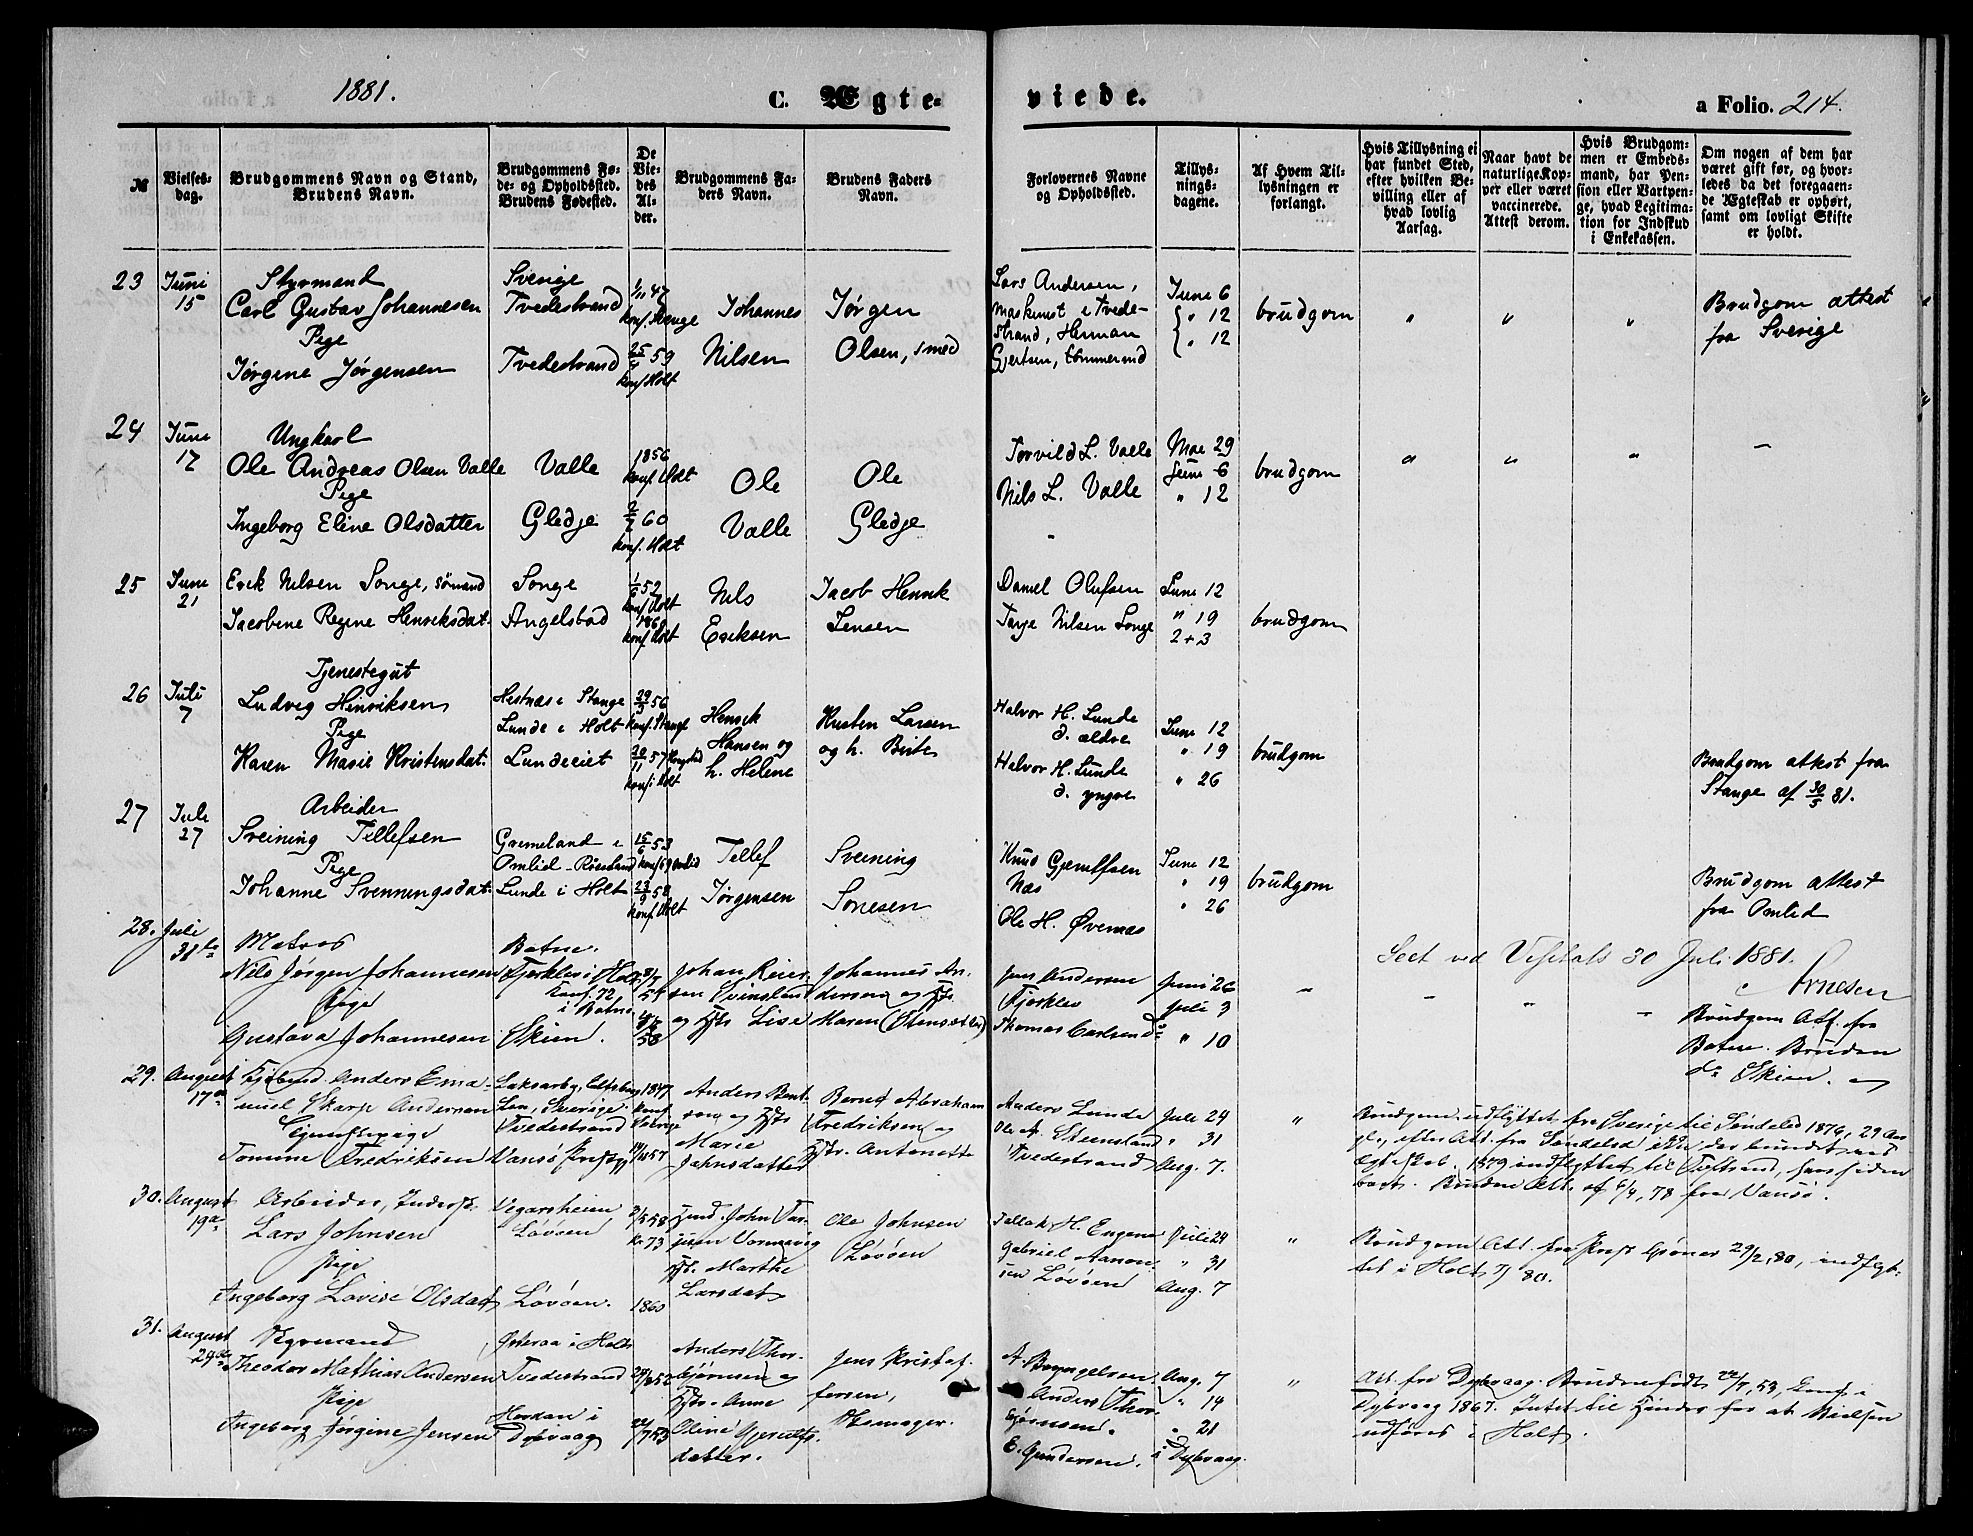 1881.
C. Ægte-
viede.
a Folio. 214.
№
Vielses-dag.
Brudgommens Navn og Stand, Brudens Navn.
Brudgommens Fø-de- og Opholdssted. Brudens Fødested.
De Vie-des Al-der.
Brudgommens Fa-ders Navn.
Brudens Faders Navn.
Forlovernes Navne og Opholdssted.
Tillys-nings-dagene.
Af Hvem Til-lysningen er forlangt.
Hvis Tillysning ei har fundet Sted, efter hvilken Be-villing eller af hvad lovlig Aarsag.
Naar havt de naturlige Kop-per eller været vaccinerede. Attest derom.
Hvis Brudgom-men er Embeds-mand, har Pen-sion eller Vartpen-ge, hvad Legitima-tion for Indskud i Enkekassen.
Om nogen af dem har været gift før, og hvor-ledes da det foregaaen-de Ægteskab er ophørt, samt om lovligt Skifte er holdt.
23 Juni 15
Styrmand
Carl Gustav Johannesen
Pige
Jørgine Jørgensen
Sverige
Tvedestrand
Tvedestrand
1/11 47
konf. Sverige
25/4 59
konf. Holt
Johannes
Nilsen
Jørgen
Olsen, smed
Lars Andersen,
maskinist i Tvede-
strand, Herman
Gjertsen, tømmermd
June 6
" 12
" 12
brudgom
" " "
Brudgom attest
fra Sverige
24 June 17
Ungkarl
Ole Andreas Olsen Valle
Pige
Ingeborg Eline Olsdatter
Valle
Gledje
1856
konf. Holt
2/2 60
konf. Holt
Ole
Valle
Ole
Gledje
Torvild L. Valle
Nils L. Valle
Mae 29
June 6
" 12
brudgom
" " " -
25 June 21
Erik Nilsen Songe, sømand
Jacobine Regine Henriksdat.
Songe
Angelstad
1/6 52
konf. Holt
1860
konf. Holt
Nils
Eriksen
Jacob Henrik
Jensen
Daniel Olufsen
Tarje Nilsen Songe
June 12
" 19
2 + 3
brudgom
26 Juli 7
Tjenestegut
Ludvig Hinriksen
Pige
Karen Marie Kristensdat.
Hestnæs i Stange
Lunde i Holt
Lundeeiet
29/3 56
konf. Stange
20/11 57
konf. i Holt
Henrik
Hansen og
h. Helene
Kristen Larsen
og h. Birte
Halvor H. Lunde
d. ældre
Halvor H. Lunde
d. yngre
June 12
" 19
" 26
brudgom
Brudgom attest fra
Stange af 30/5 81.
27 Juli 27
Arbeider
Sveining Tellefsen
Pige
Johanne Svenningsdat.
Gremeland i
Omlid - Røiseland
Lunde i Holt
15/6 53
konf. 69 Omlid
23/9 58
konf. Holt
Tellef
Jørgensen
Sveining
Sonesen
Knud Gjerulfsen
Næs
Ole H. Øvernæs
June 12
" 19
" 26
brudgom
Brudgom attest
fra Omlid
28. Juli 31te
Matros
Nils Jørgen Johannesen
Pige
Gustava Johannesen
Botne.
Fjerklev i Holt
Konf. 72
i Botne
Skien.
Johan Reier-
sen Svinsland
og Hstr Lise
Johannes An-
dersen og Hstr
Maren
Jens Andersen
Fjerklev
Thomas Carlsen do
Juni 26
Juli 3
" 10
Seet ved Visitats 30 Juli 1881.
Arnesen
Brudgom Att. fra
Botne. Bruden
do Skien.
29. August 17de
Anders Ema-
nuel Skarp Andersen
Tjenestepige
Tomine Fredriksen
Sverige.
Tvedestrand
Vansø
1847
Anders Bent-
son og Hstr
Marie
Jahnsdatter
Bernt Abraham
Fredriksen og
Hstr. Antonette
Anders Lunde
Ole A. Steensland
Tvedestrand
Juli 24
" 31
Aug. 7.
"
Brudgom. udflyttet fra Sverige til Søndeled 1876, 29 Au-
g., efter Att. fra Søndeled ikke der bundet ved
Egteskab. 1879 indflyttet til Tvedestrand, hvor siden
boet. Bruden Att. af 6/4, 78 fra Vansø.
30. August 19de
Arbeider, Inderst
Lars Johnsen
Pige
Ingeborg Lovise Olsdat
Vegarsheien
Løvøen
Løvøen.
3/5 58
Kr 73
1860
John Tar-
jusen Vormevig
Hstr. Marthe
Larsdat
Ole Johnsen
Løvøen
Tellak H. Engene
Gabriel Aanon-
sen Løvøen
Juli 24
" 31
Aug. 7
"
Brudgom Att. fra Præst Grøner 29/2, 80, indflyt-
tet i Holt 80.
31. August 29de
Styrmand
Theodor Mathias Andersen
Pige
Ingeborg Jørgine Jensen
Østeraa i Holt
Tvedestrand
Hovdan i
Dybvaag
22/7 53
Anders Thor-
bjørnsen og
Hstr. Anne
Oline Gjerulfs-
datter.
Jens Kristof-
fersen,
A. Bøvngelsen.
Anders Thor-
bjørnsen.
E. Gundersen.
Aug. 7
" 14
" 21
i Dybvaag.
"
Att. fra Dybvaag. Bruden født 22/7, 53, konf. i
Dybvaag 1867. Intet til Hinder for at Vielsen
udføres i Holt.